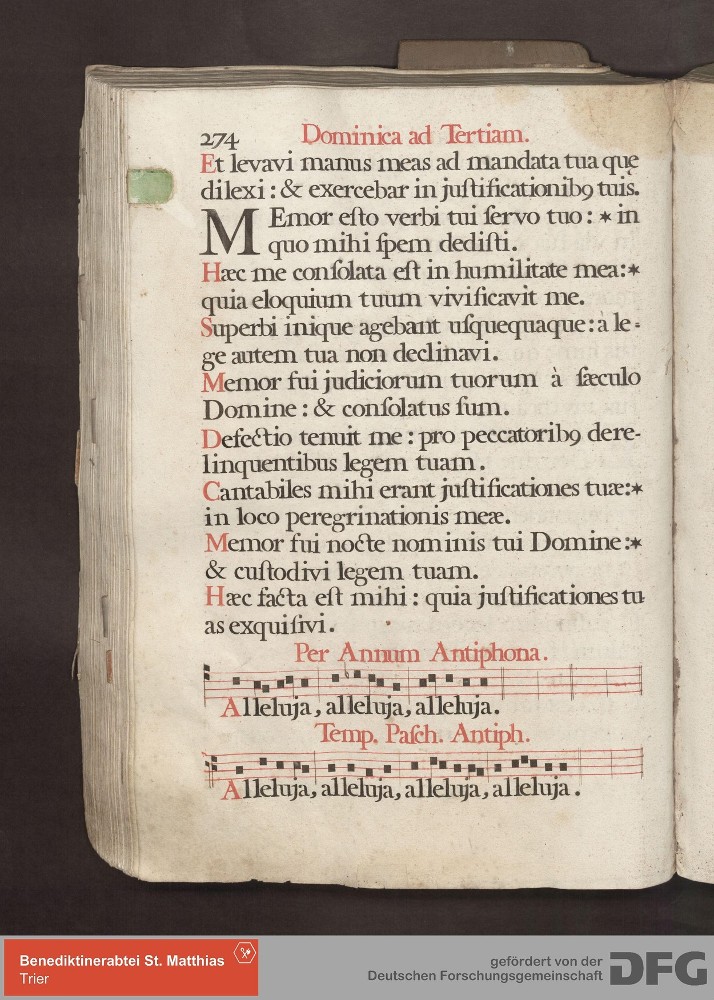 274 Dominica ad Tertiam.
Et levavi manus meas ad mandata tua quę
dilexi : & exercebar in juſtificationibꝰ tuis.
MEmor eſto verbi tui ſervo tuo : * in
quo mihi ſpem dediſti.
Hæc me conſolata eſt in humilitate mea:*
quia eloquium tuum vivificavit me.
Superbi inique agebant uſquequaque : à le-
ge autem tua non declinavi.
Memor fui judiciorum tuorum à ſæculo
Domine : & conſolatus ſum.
Defectio tenuit me : pro peccatoribꝰ dere-
linquentibus legem tuam.
Cantabiles mihi erant juſtificationes tuæ:*
in loco peregrinationis meæ.
Memor fui nocte nominis tui Domine:*
& cuſtodivi legem tuam.
Hæc facta eſt mihi : quia juſtificationes tu-
as exquiſivi.
Per Annum Antiphona.
Alleluja, alleluja, alleluja.
Temp. Paſch. Antiph.
Alleluja, alleluja, alleluja, alleluja.
Benediktinerabtei St. Matthias
Trier
gefördert von der
Deutschen Forschungsgemeinschaft DFG